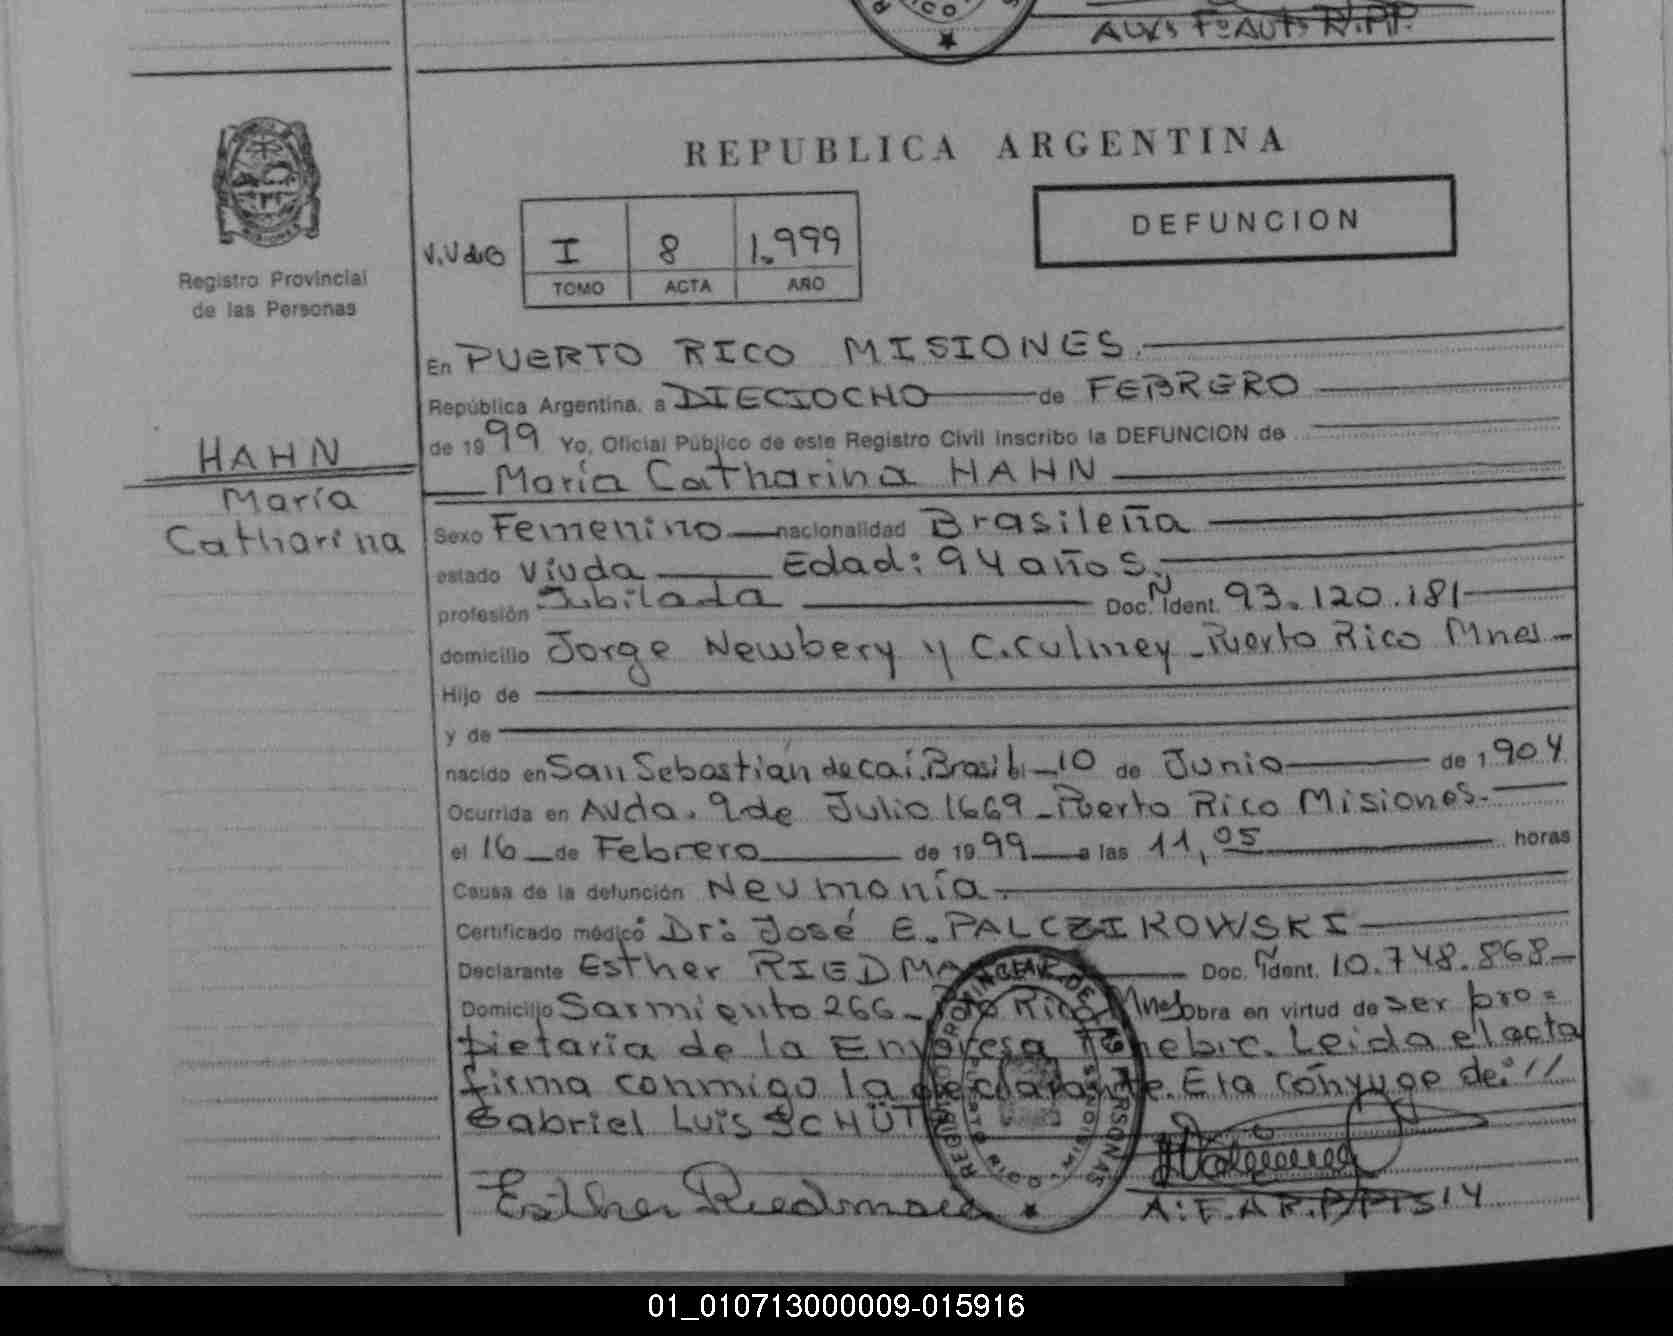 AUX: Fº AUTS R.PP.
REPUBLICA ARGENTINA
DEFUNCION
I 8 1.999
TOMO ACTA AÑO
Registro Provincial
de las Personas
HAHN
María
Catharina
En PUERTO RICO MISIONES.
República Argentina, a DIECIOCHO de FEBRERO
de 1999 Yo, Oficial Público de este Registro Civil inscribo la DEFUNCION de
María Catharina HAHN
Sexo Femenino nacionalidad Brasileña
estado Viuda Edad: 94 años.
profesión Jubilada Doc. N Ident. 93.120.181
domicilio Jorge Newbery y C.Culmey - Puerto Rico Mnes
Hijo de
y de
nacido en San Sebastián de caí. Brasil el 10 de Junio de 1.904
Ocurrida en Avda. 9 de Julio 1669 - Puerto Rico Misiones.
el 16 de Febrero de 1999 a las 11,05 horas
Causa de la defunción Neumonía.
Certificado médico Dr: José E. PALCZIKOWSKI
Declarante Esther RIEDMA Doc. N Ident. 10.748.868
Domicilio Sarmiento 266 - Pto Rico Mnes Obra en virtud de ser pro=
pietaria de la Empresa Fúnebre. Leida el acta
firma conmigo la declarante. Era cónyuge de: //
Gabriel Luis SCHÜT
Esther Riedmaier
REGISTRO PROVINCIAL DE LAS PERSONAS
PUERTO RICO MISIONES
01_010713000009-015916